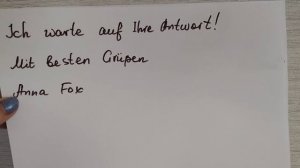 Ich warte auf Ihre Antwort!
Mit Besten Grüßen
Anna Fox